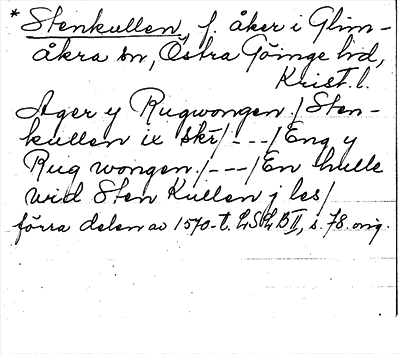 * Stenkullen, f. åker i Glim-
åkra sn, Östra Göinge hd,
Krist. l.
Ager y Rugwongen / Sten-
kullen ix skr/---/Eng y
Rug wongen./---/En hulle
wid Sten Kullen j les/
förra delen av 1570-t. LSLB II, s. 78. orig.